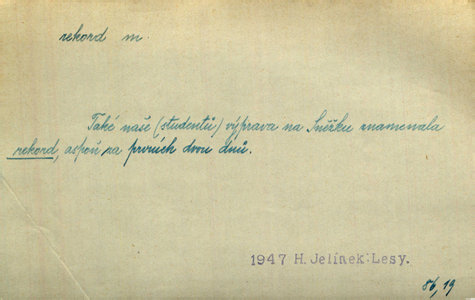 rekord m.
Také naše (studentů) výprava na Sněžku znamenala
rekord, aspoň za prvních dvou dnů.
1947 H. Jelínek: Lesy.
86, 19